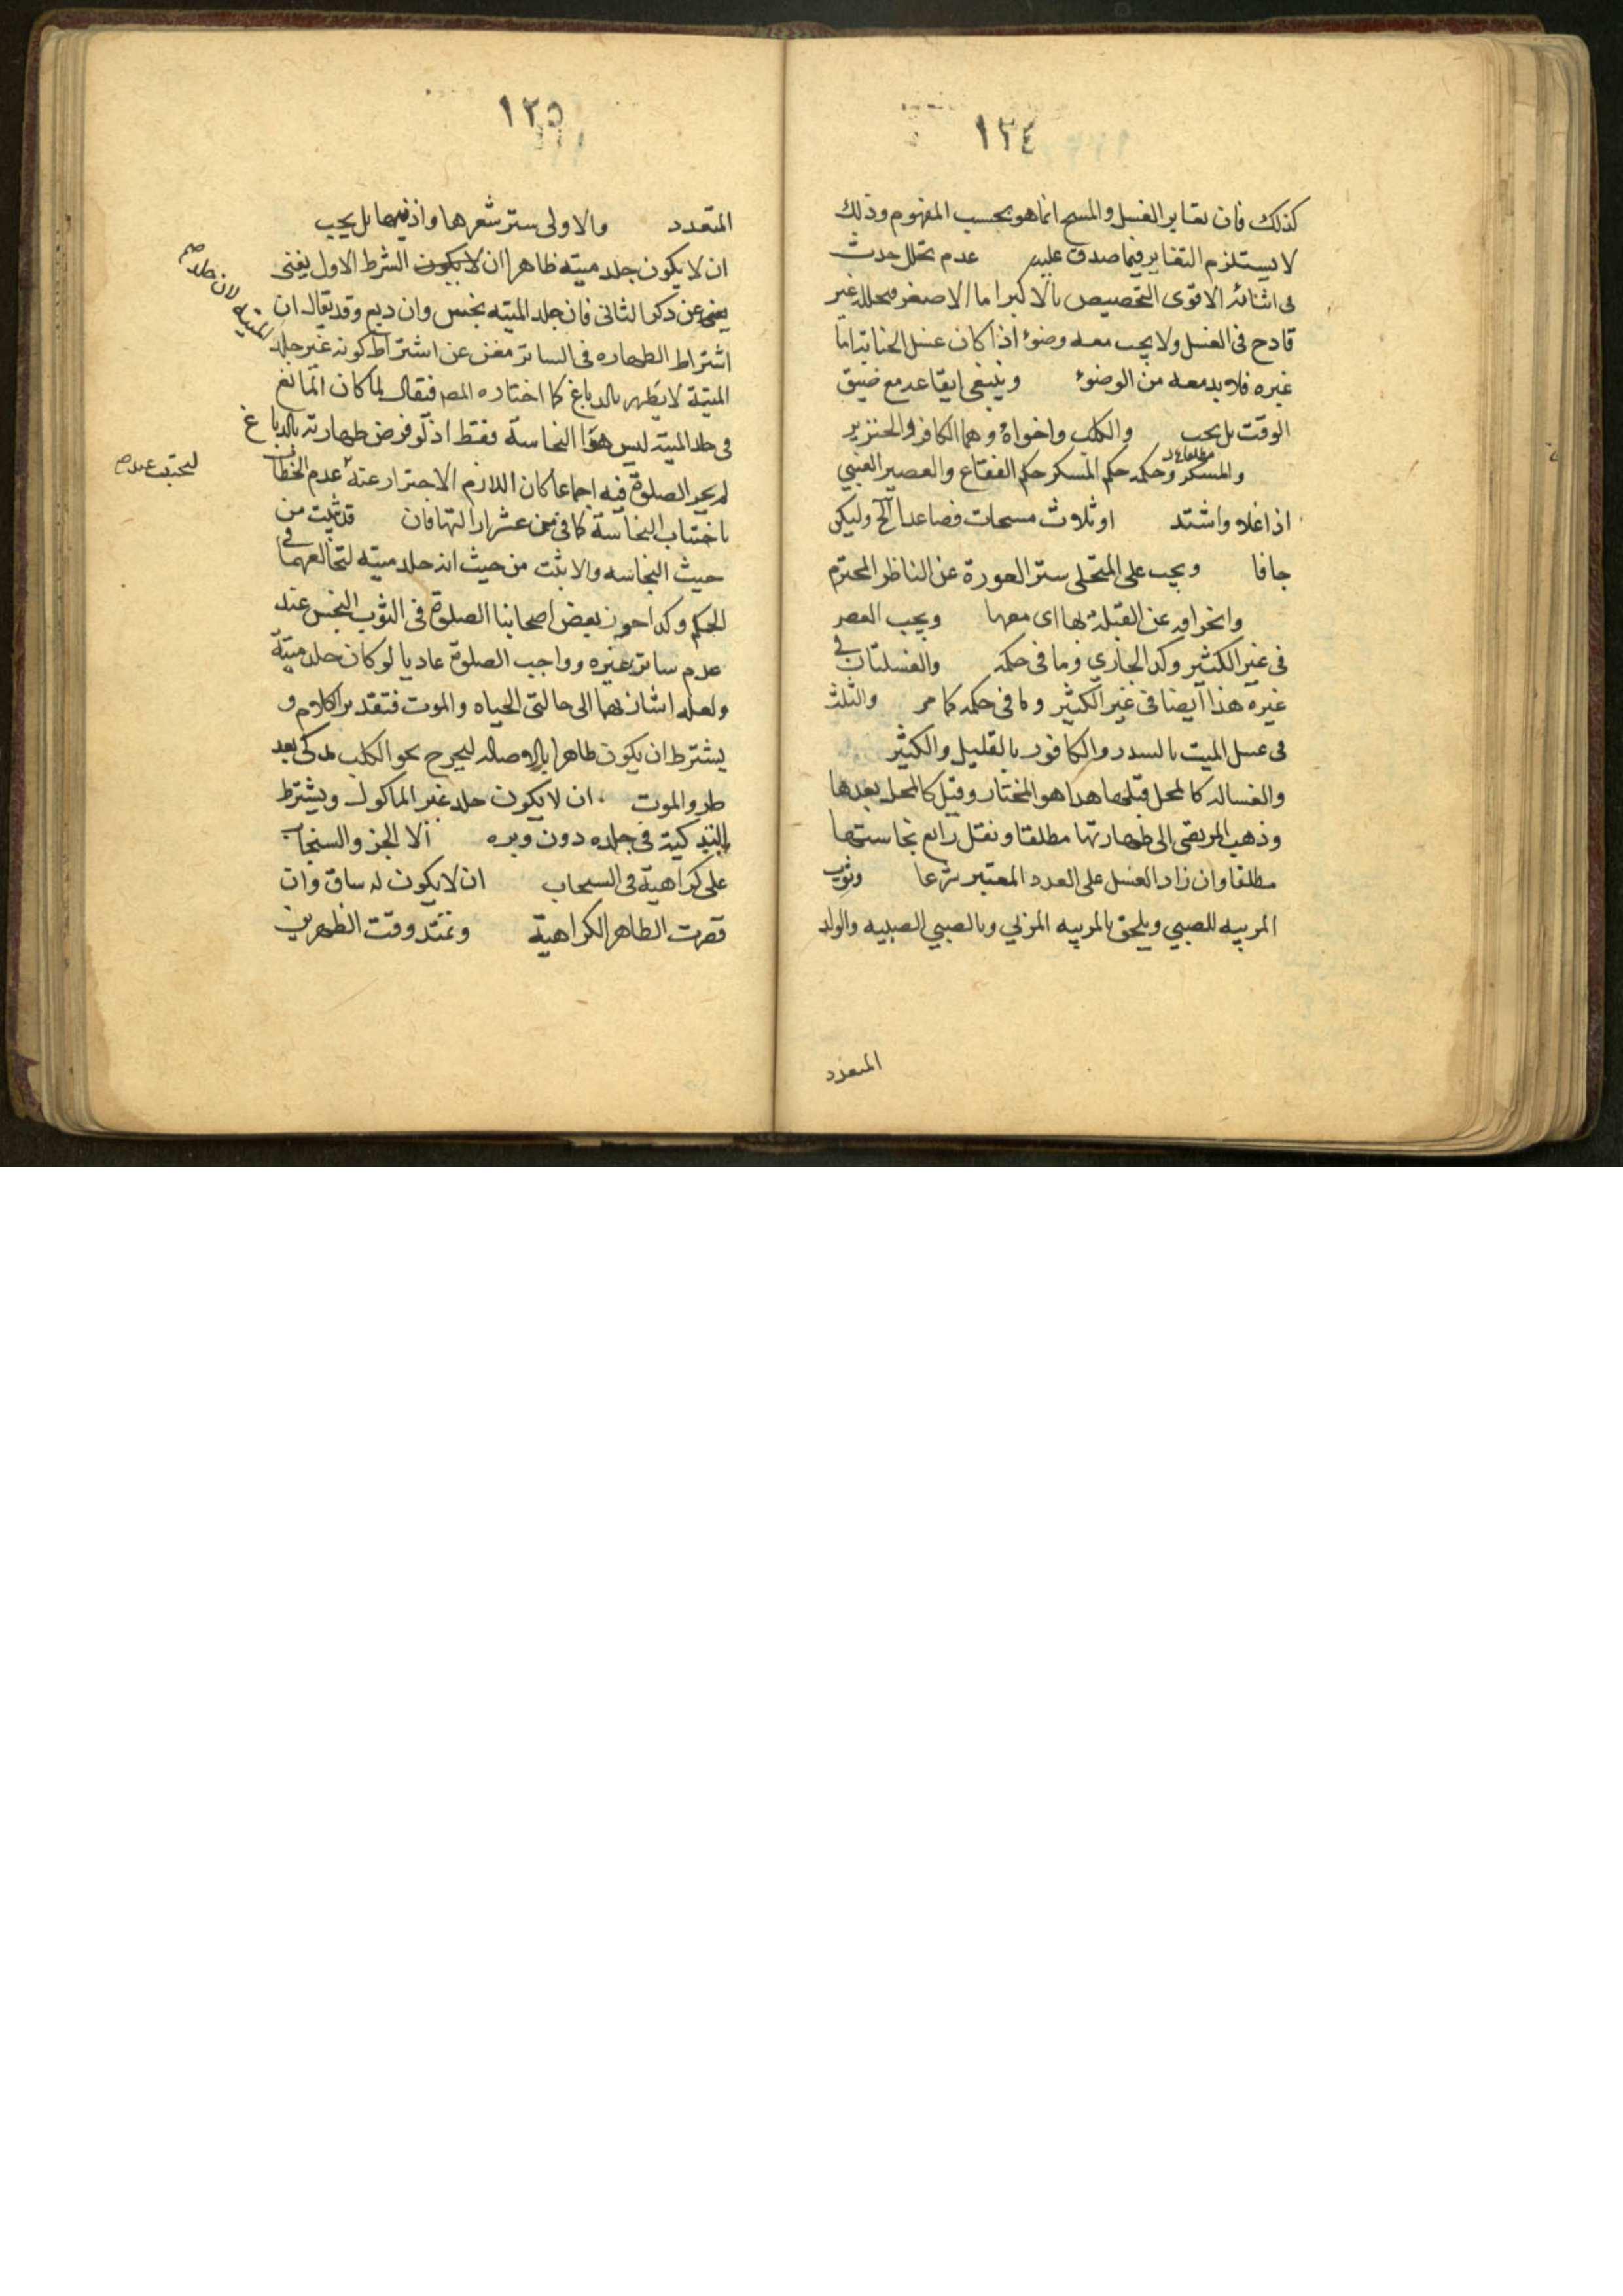 ١٢٤
كذلك فان تغاير الغسل والمسح انما هو بحسب المفهوم وذلك
لا يستلزم التغاير فيما صدق عليه عدم تخلل حدث
فى اثنائه الاقوى التخصيص بالاكبر اما الاصغر فتخلله غير
قادح فى الغسل ولا يجب معه وضوء اذا كان غسل الجنابة اما
غيره فلا بد معه من الوضوء وينبغى ايقاعه مع ضيق
الوقت بل يجب والكلب واخواه وهما الكافر والخنزير
والمسكر وحكمه حكم المسكر حكم الفقاع والعصير العنبي
اذا غلا واشتد او ثلاث مسحات فصاعدا الخ وليكن
جافا ويجب على المتخلى ستر العورة عن الناظر المحترم
وانحرافه عن القبلة بها اى معها ويجب العصر
فى غير الكثير وكذا الجارى وما فى حكمه والغسلتان فى
غيره هذا ايضا فى غير الكثير وما فى حكمه كما مر والثلث
فى غسل الميت بالسدر والكافور بالقليل والكثير
والغساله كالمحل قبلها هذا هو المختار وقيل كالمحل بعدها
وذهب المرتضى الى طهارتها مطلقا ونقل رابع نجاستها
مطلقا وان زاد الغسل على العدد المعتبر شرعا وثوب
المربيه للصبي ويلحق بالمربيه المربي وبالصبي الصبيه والولد
المتعدد
١٢٥
المتعدد والاولى ستر شعرها واذنيها بل يجب
ان لا يكون جلد ميته ظاهرا ان لا يكون الشرط الاول يغنى
يغنى عن ذكر الثانى فان جلد الميته نجس وان دبغ وقد يقال ان
اشتراط الطهاره فى الساتر مغن عن اشتراط كونه غير جلد
الميتة لان جلد
الميتة لا يطهر بالدباغ كما اختاره المصـ فيقال لما كان المانع
فى جلد الميته ليس هو النجاسة فقط اذ لو فرض طهارته بالدباغ
لم يجز الصلوة فيه اجماعا كان اللازم الاحتراز عنه عدم
باجتناب النجاسة كما فى عشر فان قد ثبت من
حيث النجاسه والا بثت من حيث انه جلد ميته لتخالفهما فى
الحكم وكذا جوز بعض اصحابنا الصلوة فى الثوب النجس عند
عدم ساتر غيره وواجب الصلوة عاديا لو كان جلد ميتة
ولعله اشار بهما الى حالتى الحياه والموت فتقدير الكلام و
يشترط ان يكون طاهرا بالاصاله ليخرج نحو الكلب لمذكى بعد
طرو الموت ان لا يكون جلد غير الماكول ويشترط
التذكية فى جلده دون وبره الا الخز والسنجاب
على كراهية فى السنجاب ان لا يكون له ساق وان
قصرت الظاهر الكراهية وتمتد وقت الظهرين